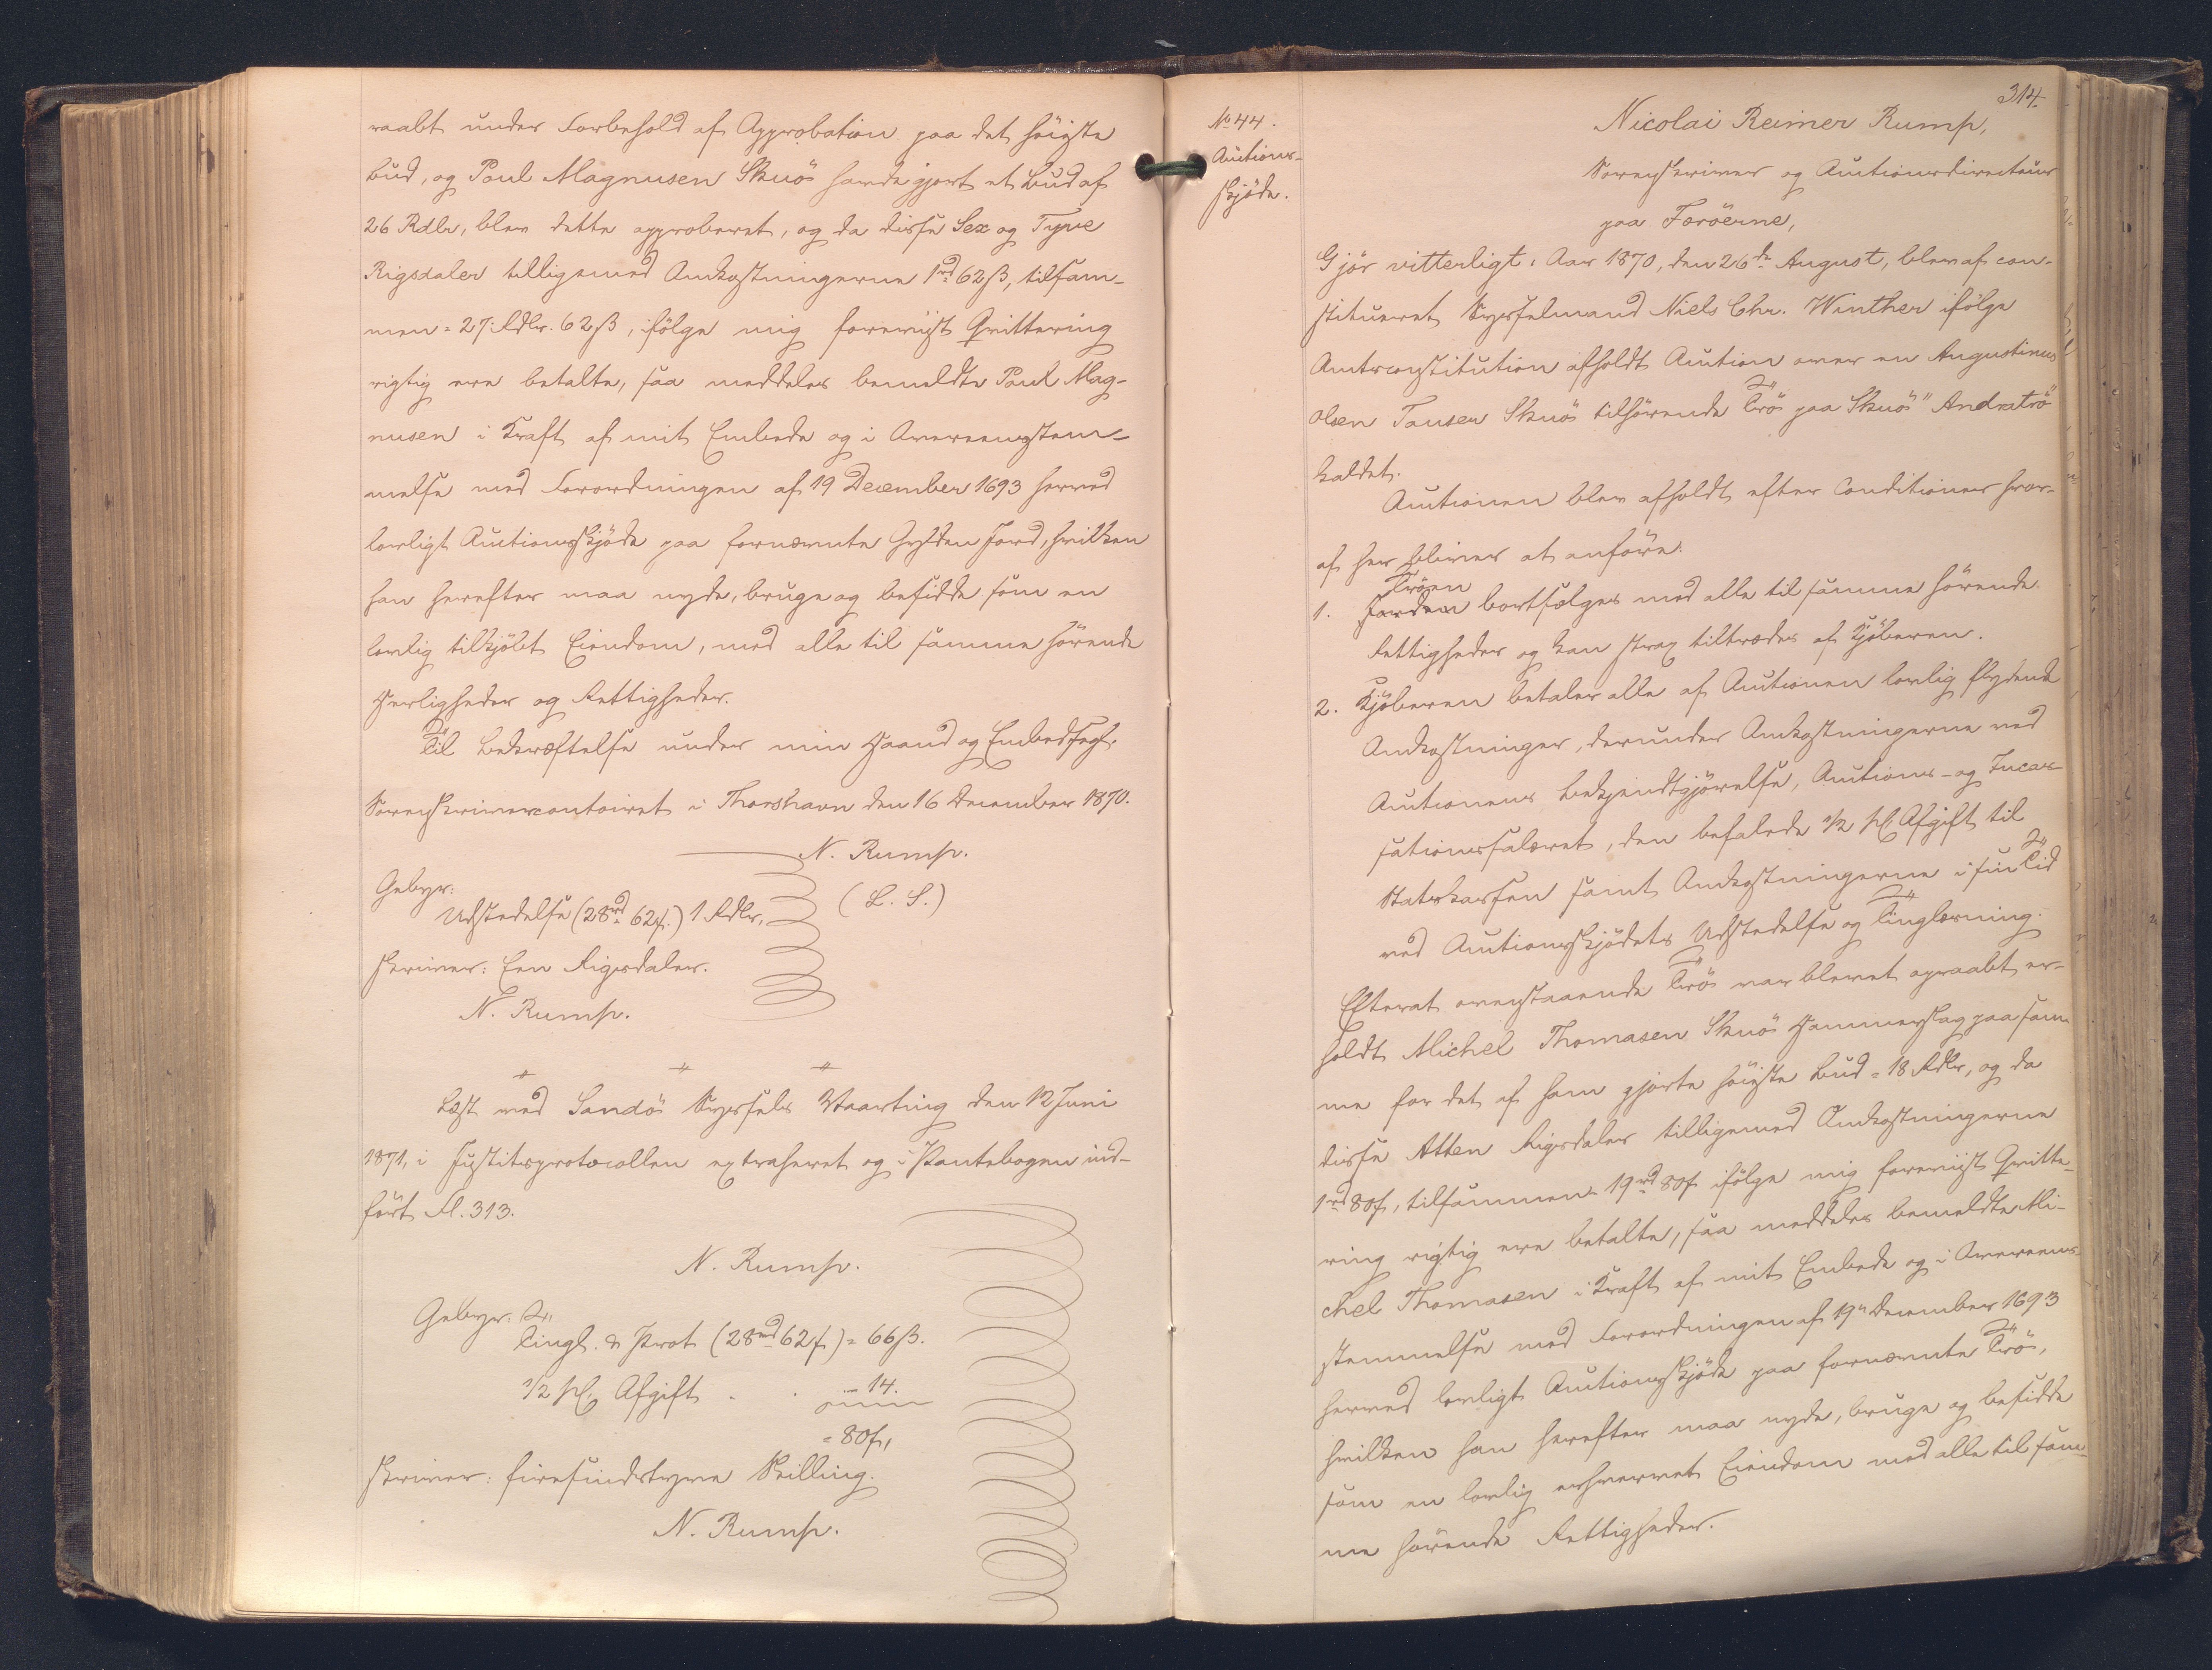 raabt under Forbehold af Approbation paa det höieste
Bud, og Poul Magnusen Skuö havde gjort et Bud af
26 Rdlr, blev dette approberet, og da disse Sex og Tyve
Rigsdaler tilligemed Omkostningerne 1rd 62ß, tilsam-
men = 27 Rdlr. 62ß, ifölge mig foreviist Qvittering
rigtig ere betalte, saa meddeles bemeldte Poul Mag-
nusen i Kraft af mit Embede og i Overeensstem-
melse med Forordningen af 19 December 1693 herved
lovligt Auctionsskjöde paa fornævnte Gylden Jord, hvilken
han herefter maa nyde, bruge og besidde som en
lovlig tilkjöbt Eiendom, med alle til samme hörende
Herligheder og Rettigheder.
Til Bekræftelse under min Haand og Embedssegl.
Sorenskrivercontoiret i Thorshavn den 16 December 1870.
N. Rump.
(L. S.)
Gebyr:
Udstedelse (28rd 62ß.) 1 Rdlr.
skriver: Een Rigsdaler.
N. Rump.
Læst ved Sandö Syssels Vaarting den 12 Juni
1871, i Justitsprotocollen extraheret og i Pantebogen ind-
fört Fl. 313.
N. Rump.
Gebyr:
Tingl. & Prot (28rd 62ß) = 66ß.
1/2 pCt Afgift . . - 14.
= 80ß,
skriver: firesindstyve Skilling.
N. Rump.
314.
No 44.
Auctions-
skjöde.
Nicolai Reimer Rump,
Sorenskriver og Auctionsdirecteur
paa Færöerne,
Gjör vitterligt: Aar 1870, den 26de August, blev af con-
stitueret Sysselmand Niels Chr. Winther ifölge
Amtsconstitution afholdt Auction over en Augustinus
Olsen Tausen Skuö tilhörende Trö paa Skuö "Andratrö"
kaldet.
Auctionen blev afholdt efter Conditioner hvor-
af her bliver at anföre:
Tröen
1. Jorden bortsælges med alle til samme hörende
Rettigheder og kan strax tiltrædes af Kjöberen.
2. Kjöberen betaler alle af Auctionen lovlig flydende
Omkostninger, derunder Omkostningerne ved
Auctionens Bekjendtgjörelse, Auctions- og Incas-
sationssalæret, den befalede 1/2 pCt Afgift til
Statskassen samt Omkostningerne i sin Tid
ved Auctionsskjödets Udstedelse og Tinglæsning.
Efterat ovenstaaende Trö var blevet opraabt er-
holdt Michel Thomasen Skuö Hammerslag paa sam-
me for det af ham gjorte höieste Bud = 18 Rdlr, og da
disse Atten Rigsdaler tilligemed Omkostningerne
1rd 80ß, tilsammen 19rd 80ß ifölge mig foreviist Qvitte-
ring rigtig ere betalte, saa meddeles bemeldte Mi-
chel Thomasen i Kraft af mit Embede og i Overeens-
stemmelse med Forordningen af 19n December 1693
herved lovligt Auctionsskjöde paa fornævnte Trö,
hvilken han herefter maa nyde, bruge og besidde
som en lovlig erhvervet Eiendom med alle til sam-
me hörende Rettigheder.